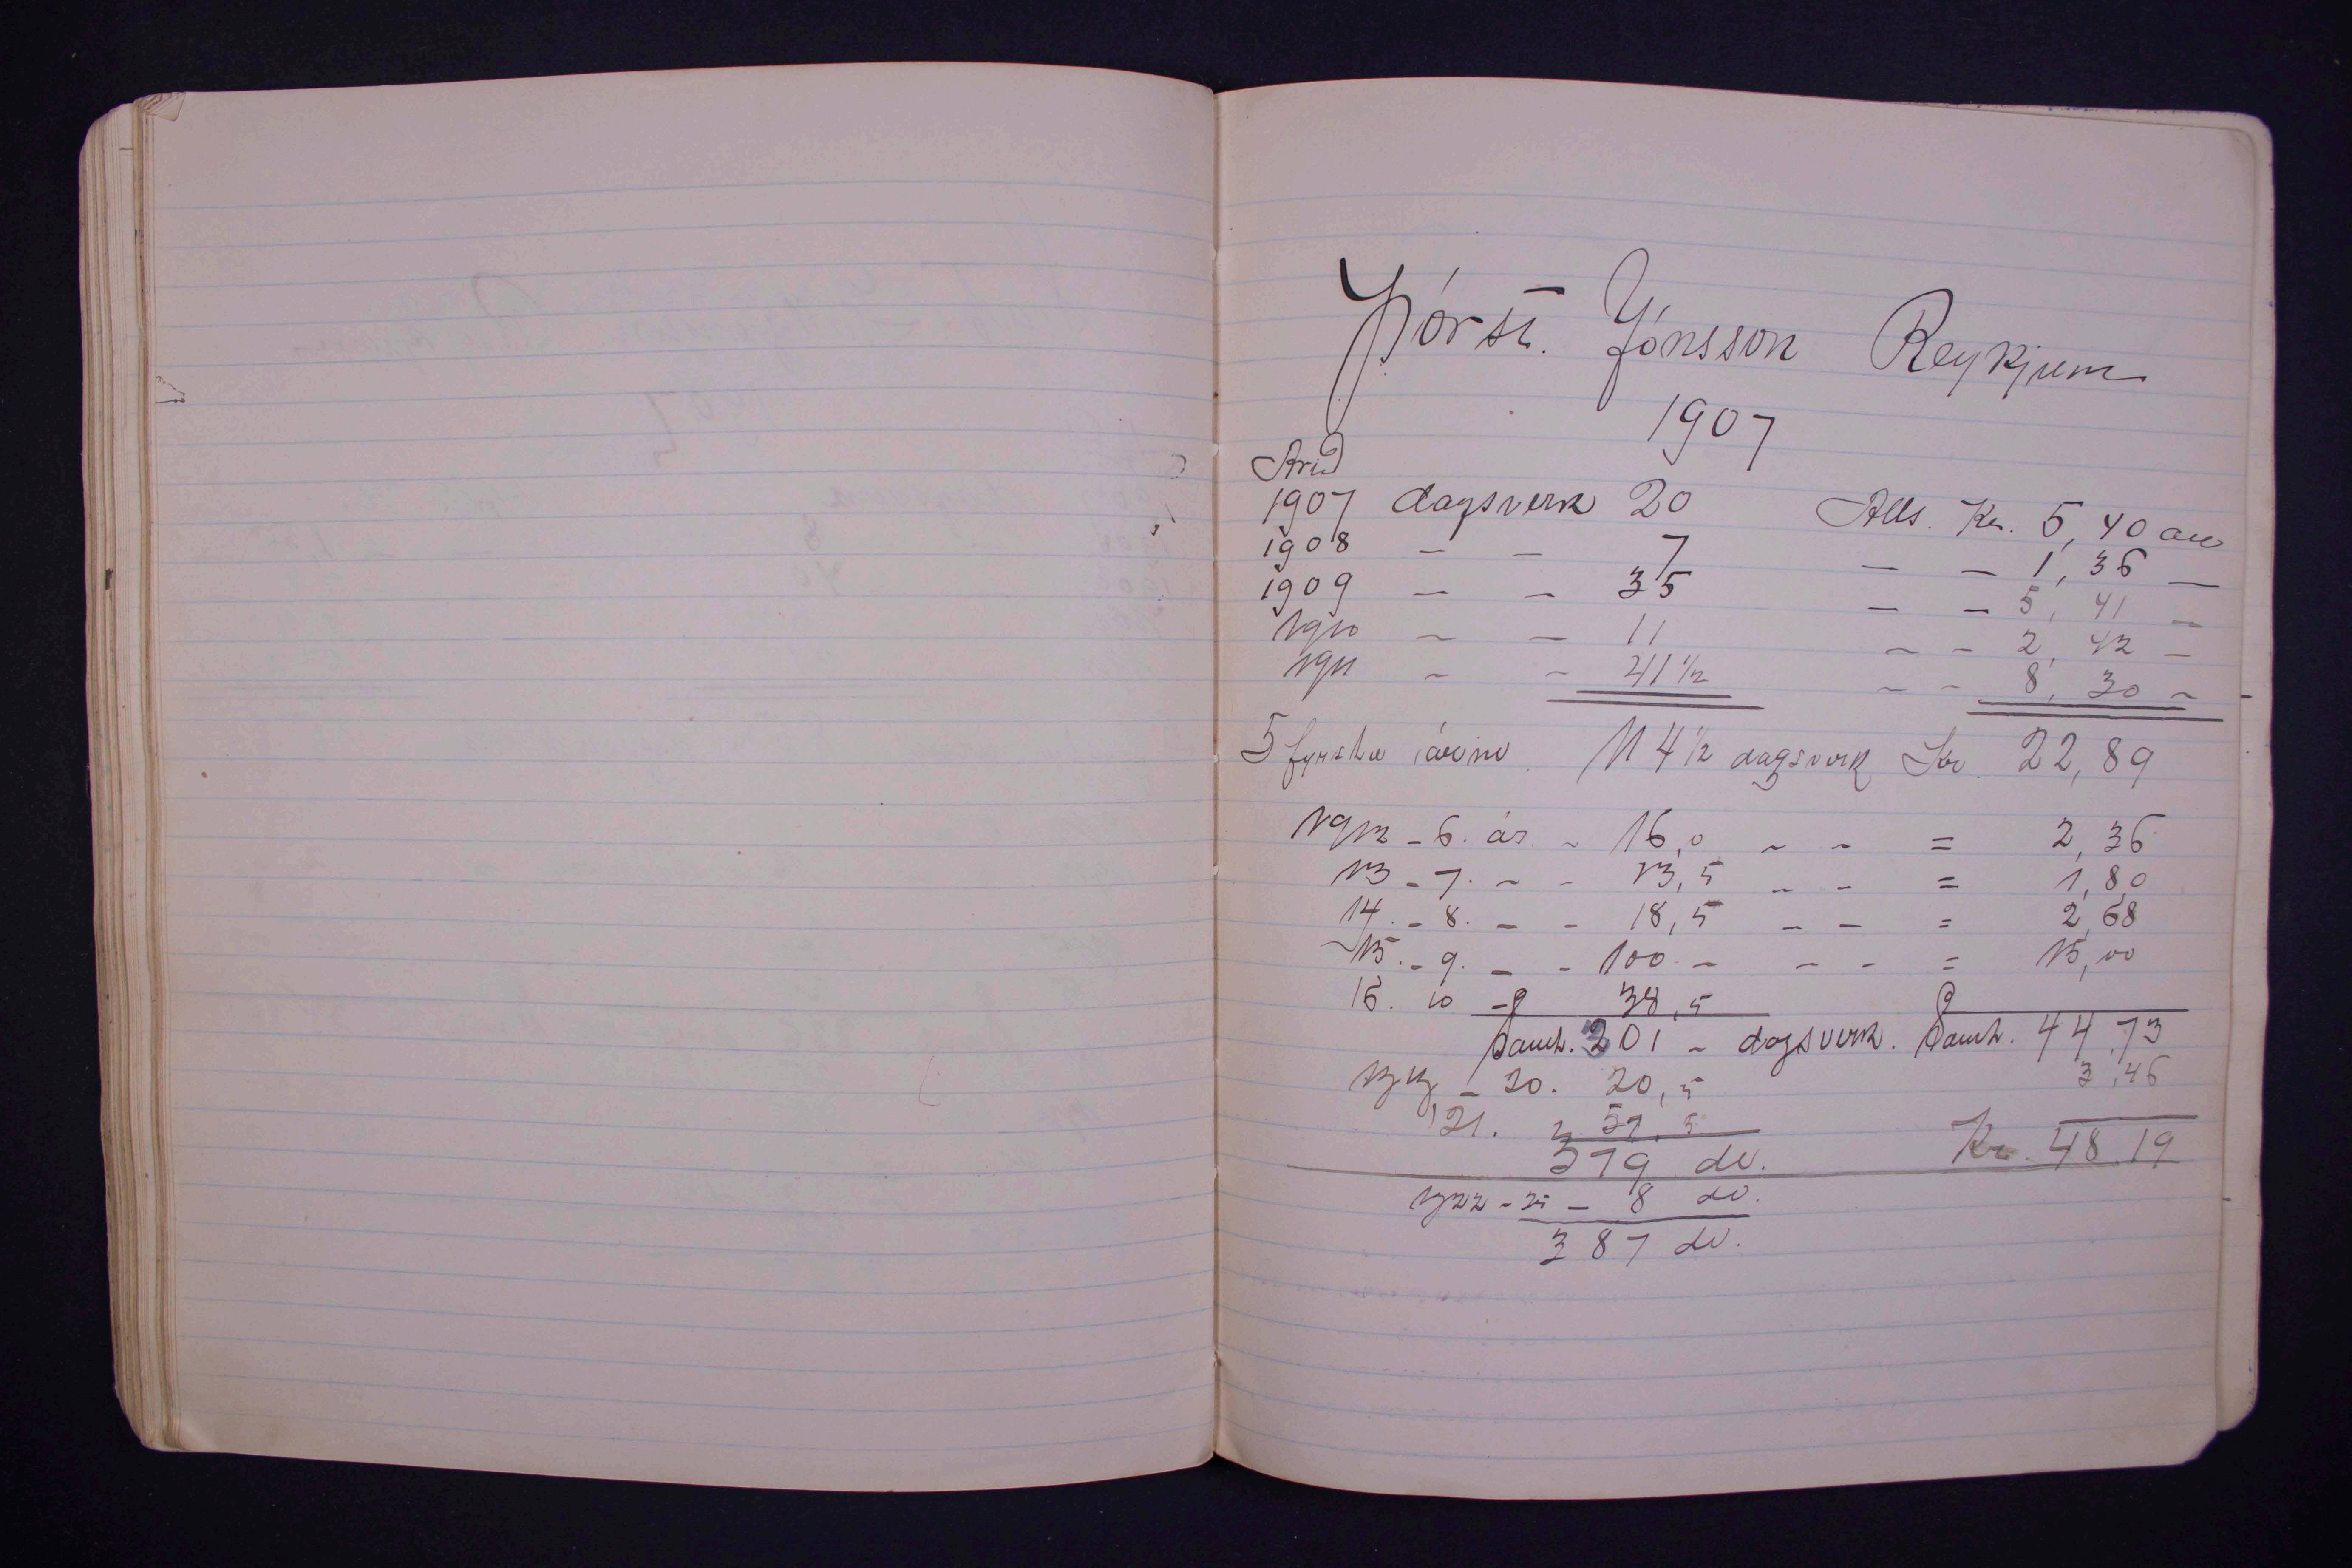 Þórst. Jónsson Reykjum
1907
Árið
1907 dagsverk 20 Alls. Kr. 5,40 au
1908 – – 7 – – 1,36 –
1909 – – 35 – – 5,41 –
1910 – – 11 – – 2,42 –
1911 – – 41 1/2 – – 8,30 –
5 fyrstu árinn 114 1/2 dagsverk Kr. 22,89
1912 – 6. ár – 16,0 – – = 2,36
13 – 7. – – 13,5 – – = 1,80
14. – 8. – – 18,5 – – = 2,68
15. – 9. – – 100 – – – = 15,00
16. 10 – 38,5
Samt. 301 – dagsverk. Samt. 44,73
– 20. 20,5 3,46
'21. 57.5
379 dv. Kr. 48.19
1922 – – 8 dv.
387 dv.